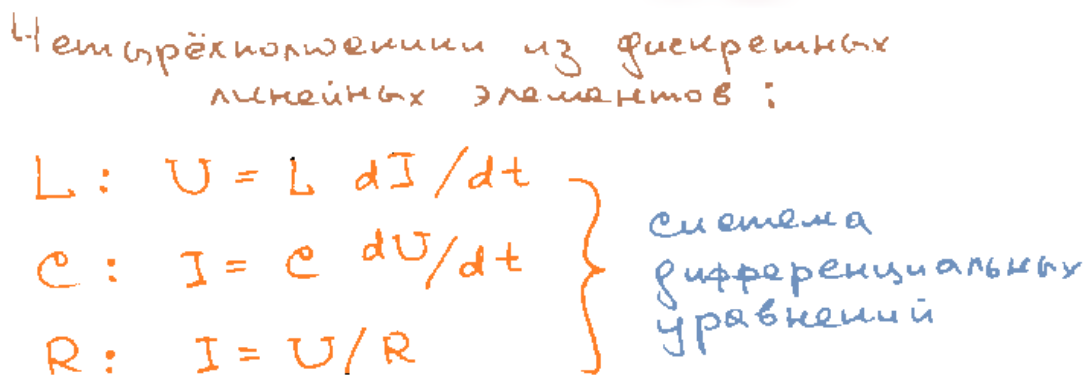 Четырёхполюсники из дискретных
линейных элементов:
L: U = L dI/dt
C: I = C dU/dt
R: I = U/R
система
дифференциальных
уравнений